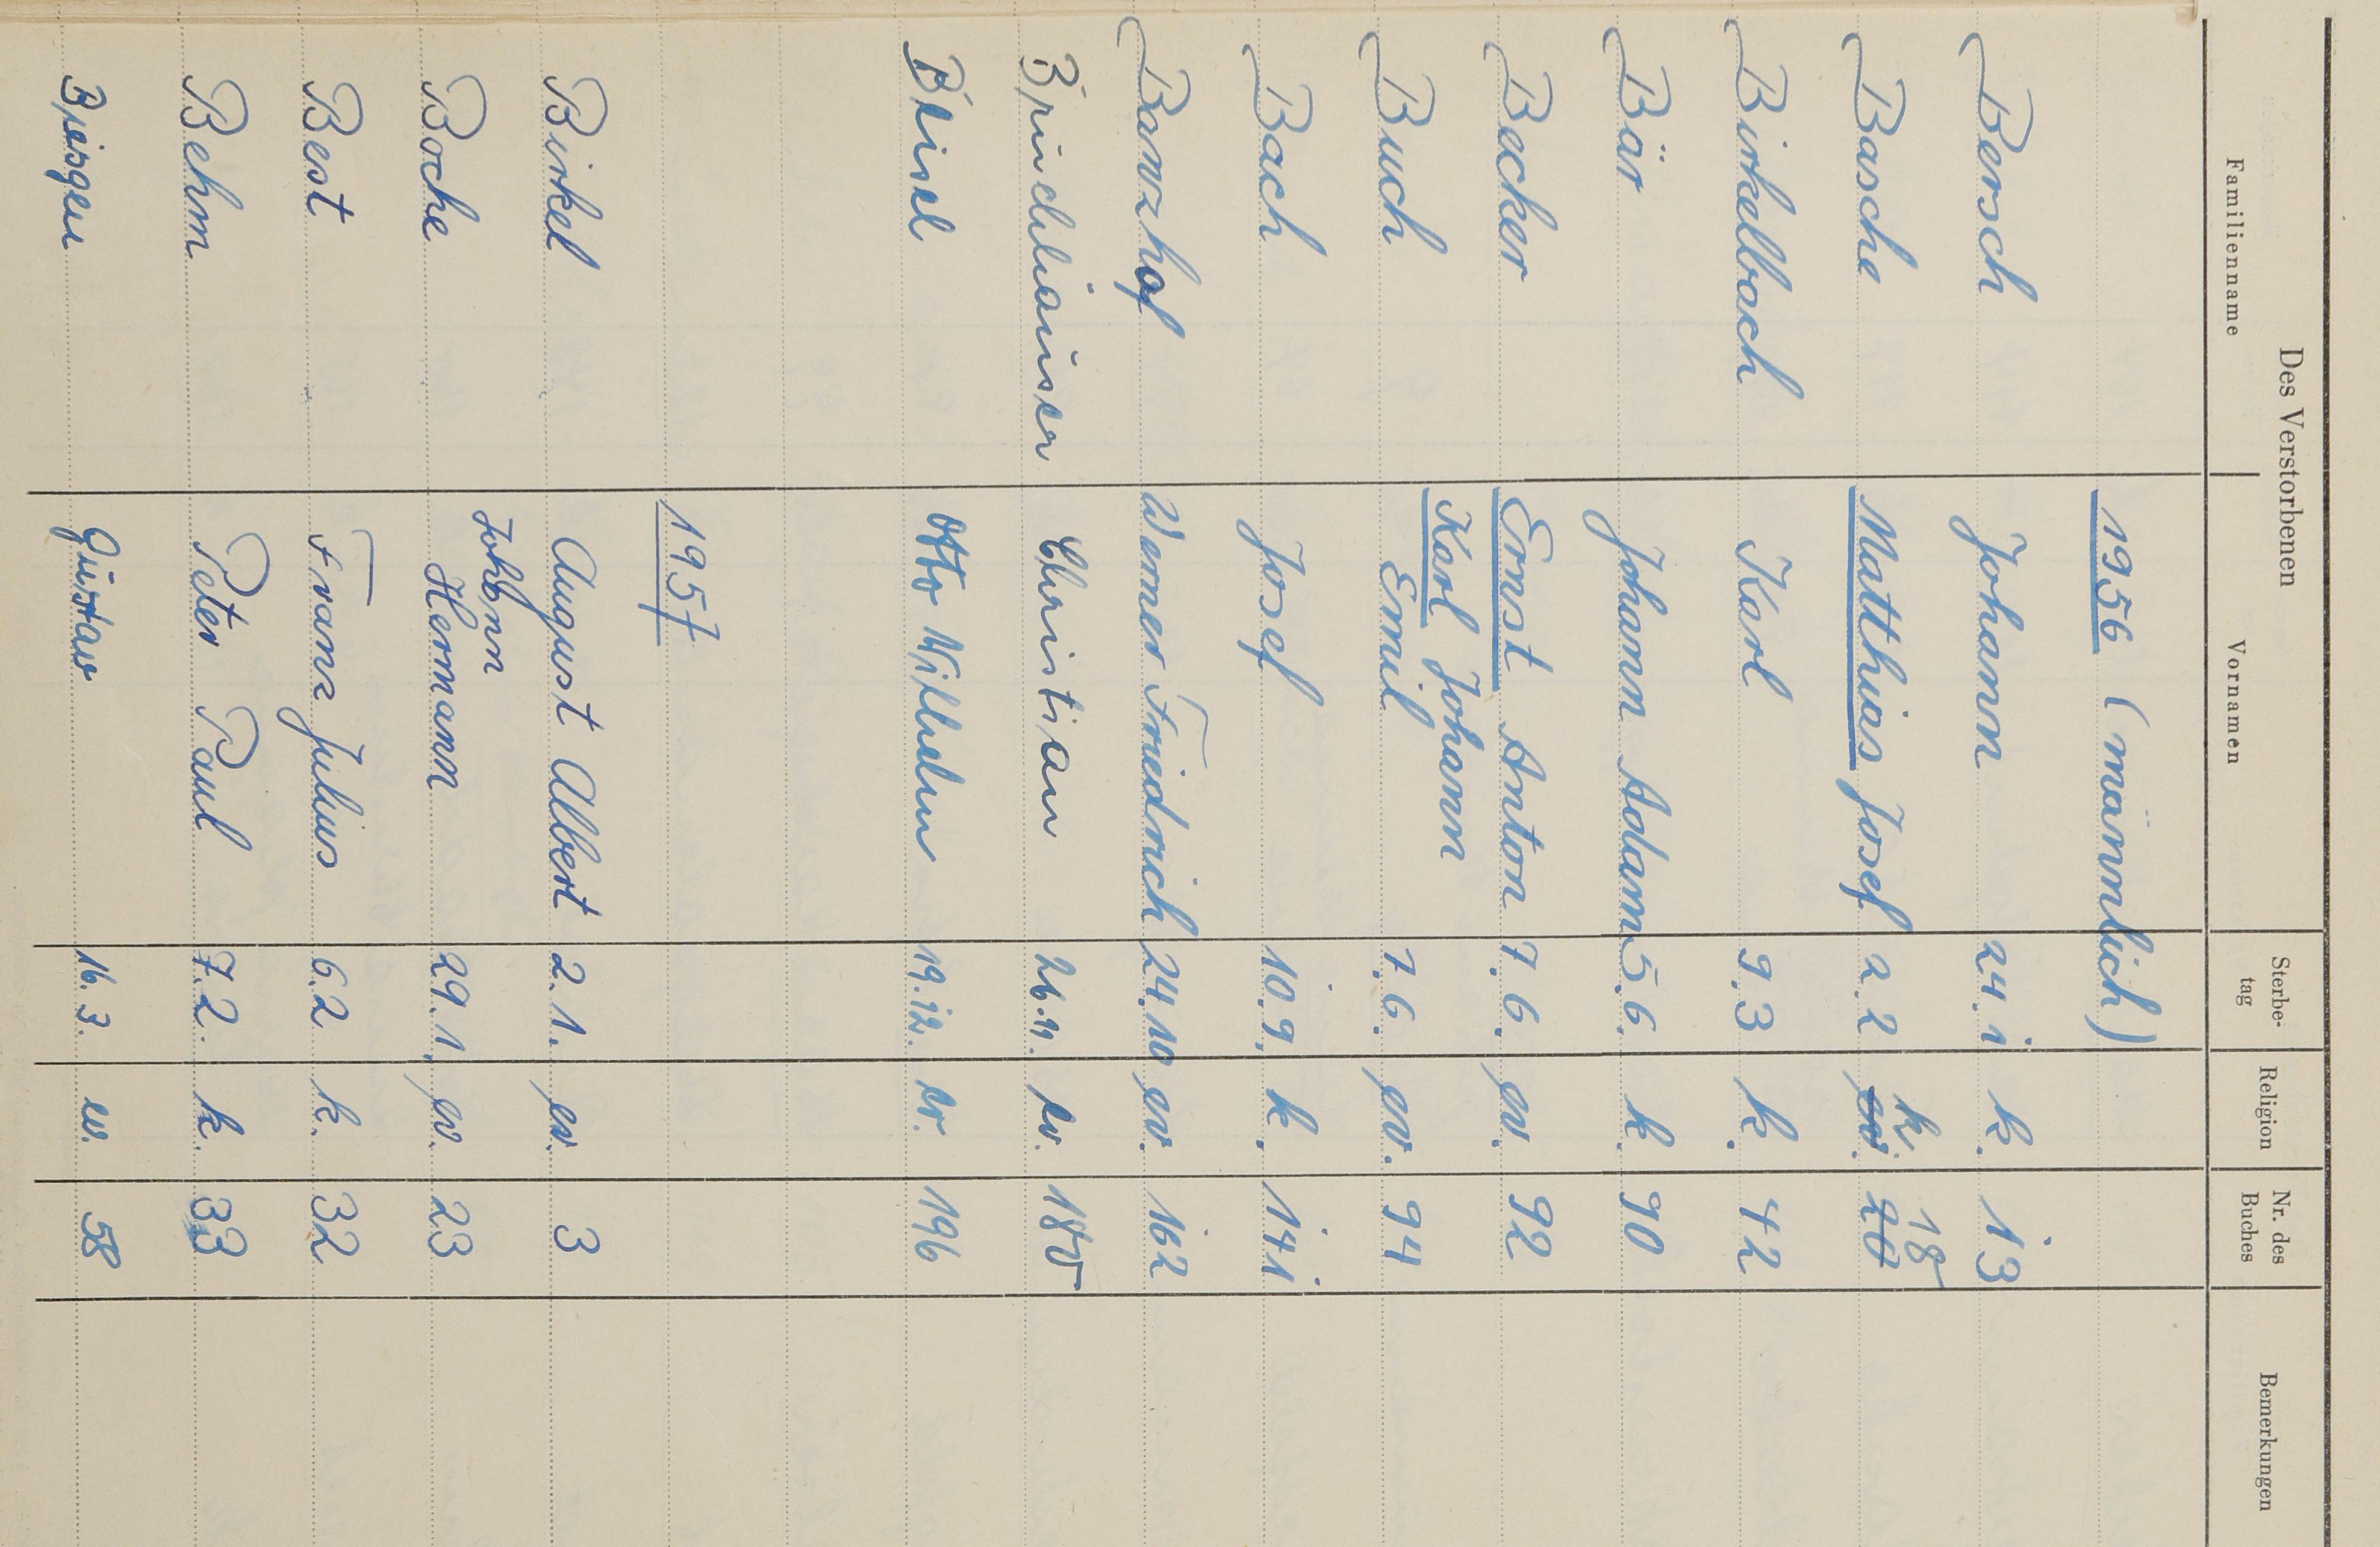 Des Verstorbenen
Familienname Vornamen Sterbe-tag Religion Nr. des Buches Bemerkungen
1956 (männlich)
Bersch Johann 24.1 k. 13
Basche Matthias Josef 2.2 ev. k. 20 18
Birkelbach Karl 9.3 k. 42
Bär Johann Adam 5.6. k. 90
Becker Ernst Anton 7.6. ev. 92
Karl Johann
Buch Emil 7.6. ev. 94
Bach Josef 10.9. k. 141
Banzhaf Werner Friedrich 24.10 ev. 162
Brückhäuser Christian 26.11. ev. 180
Otto Wilhelm 19.12. ev. 196
1957
Birkel August Albert 2.1. ev. 3
Johann
Boche Hermann 29.1. ev. 23
Best Franz Julius 6.2 k. 32
Behm Peter Paul 7.2. k. 33
Breisgen Gustav 16.3. ev. 58